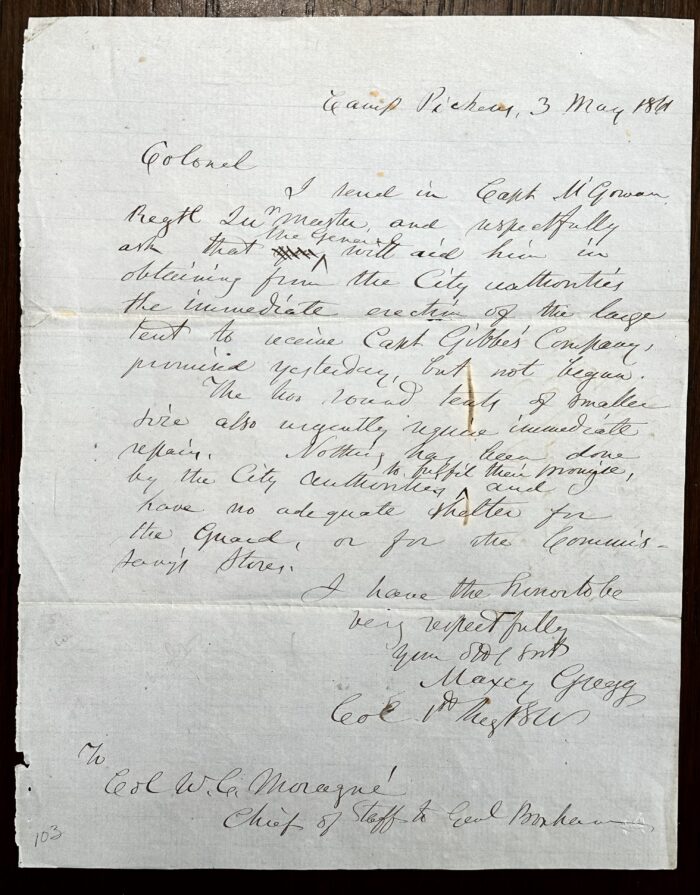 Camp Pickens, 3 May 1861
Colonel
I send in Capt McGowan,
Regtl Qur master, and respectfully
ask that the General will aid him in
obtaining from the City authorities
the immediate erection of the large
tent to receive Capt Gibbes's Company,
promised yesterday, but not begun.
The two round tents of smaller
size also urgently require immediate
repair. Nothing has been done
by the City authorities to fulfil their promise, and
have no adequate shelter for
the Guard, or for the Commis-
sary's Stores.
I have the honor to be
very respectfully
your obdt svt
Maxcy Gregg
Col 1st Regt
To
Col W. C. Moragné
Chief of Staff to Genl Bonham
103